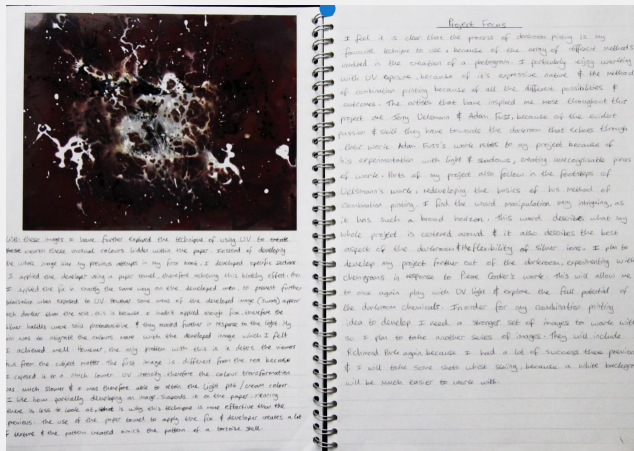 With these images I have further explored the technique of using UV to create
these warm these unusual colours hidden within the paper. Instead of developing
the whole image like my previous attempts in my first ones, I developed specific sections
I applied the developer using a paper towel, therefore achieving this blotchy effect. Then
I applied the fix in exactly the same way on the developed area, to prevent further
sensation when exposed to UV. However some areas of the developed image appear
much darker than the rest, this is because I hadn't applied enough fix, therefore the
silver halides were still photosensitive & they reacted further in response to the light. My
aim was to integrate the colours more with the developed image which I feel
I achieved well. However the only problem with this is it detracts the viewer
from the subject matter. The first image is different from the rest because
I exposed it to a much lower UV intensity therefore the colour transformation
was much slower & I was therefore able to retain the light pink/cream colour.
I like how partially developing an image suspends it to the paper, meaning
there is less to look at, which is why this technique is more effective than the
previous. The use of the paper towel to apply the fix & developer creates a lot
of texture & the pattern created mimics the pattern of a tortoise shell.
Project Focus
I feel it is clear that the process of darkroom printing is my
favourite technique to use, because of the array of different methods
involved in the creation of a photogram. I particularly enjoy working
with UV exposure, because of it's expressive nature & the method
of combination printing because of all the different possibilities &
outcomes. The artists that have inspired me most throughout this
project are Jerry Uelsmann & Adam Fuss, because of the evident
passion & skill they have towards the darkroom that echoes through
their work. Adam Fuss's work relates to my project because of
his experimentation with light & shadows, creating unrecognisable pieces
of work. Parts of my project also follow in the footsteps of
Uelsmann's work, redeveloping the basics of his method of
Combination printing. I find the word manipulation very intriguing, as
it has such a broad horizon. This word describes what my
whole project is centered around & it also describes the best
aspect of the darkroom & the flexibility of silver ions. I plan to
develop my project further out of the darkroom, experimenting with
chemigrams in response to Pierre Cordier's work. This will allow me
to once again play with UV light & explore the full potential of
the darkroom chemicals. In order for my combination printing
idea to develop I need a stronger set of images to work with
so I plan to take another series of images. They will include
Richmond Park again because I had a lot of success there previously
& I will take some shots whilst skiing, because a white background
will be much easier to work with.